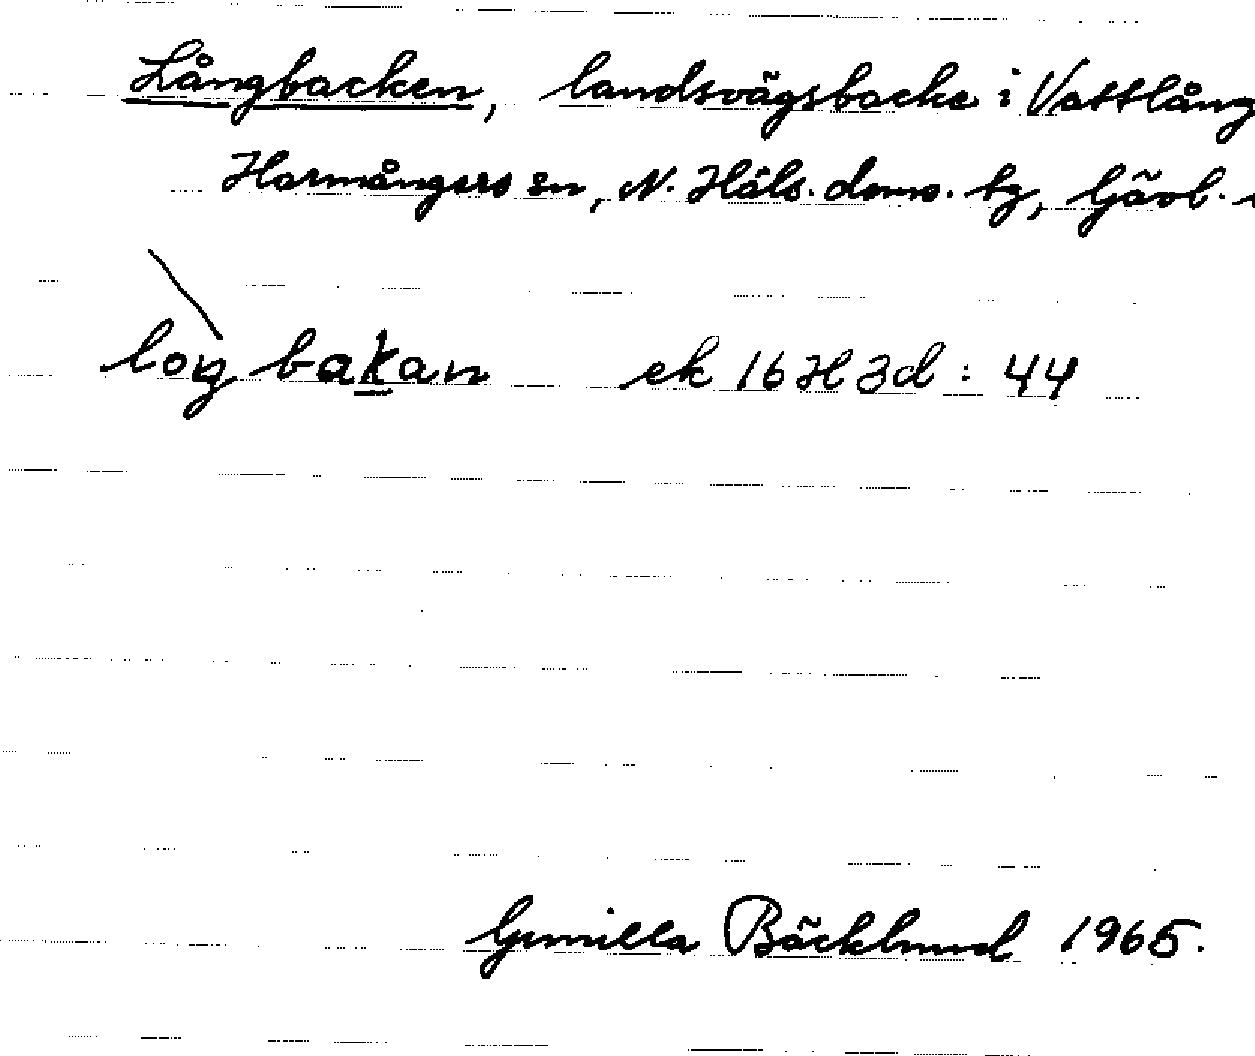 Långbacken, landsvägsbacke i Vattlång
Harmångers sn, N. Häls. doms. tg, Gävl.
loŋ bakan ek 16 H 3d : 44
Gunilla Bäcklund 1965.